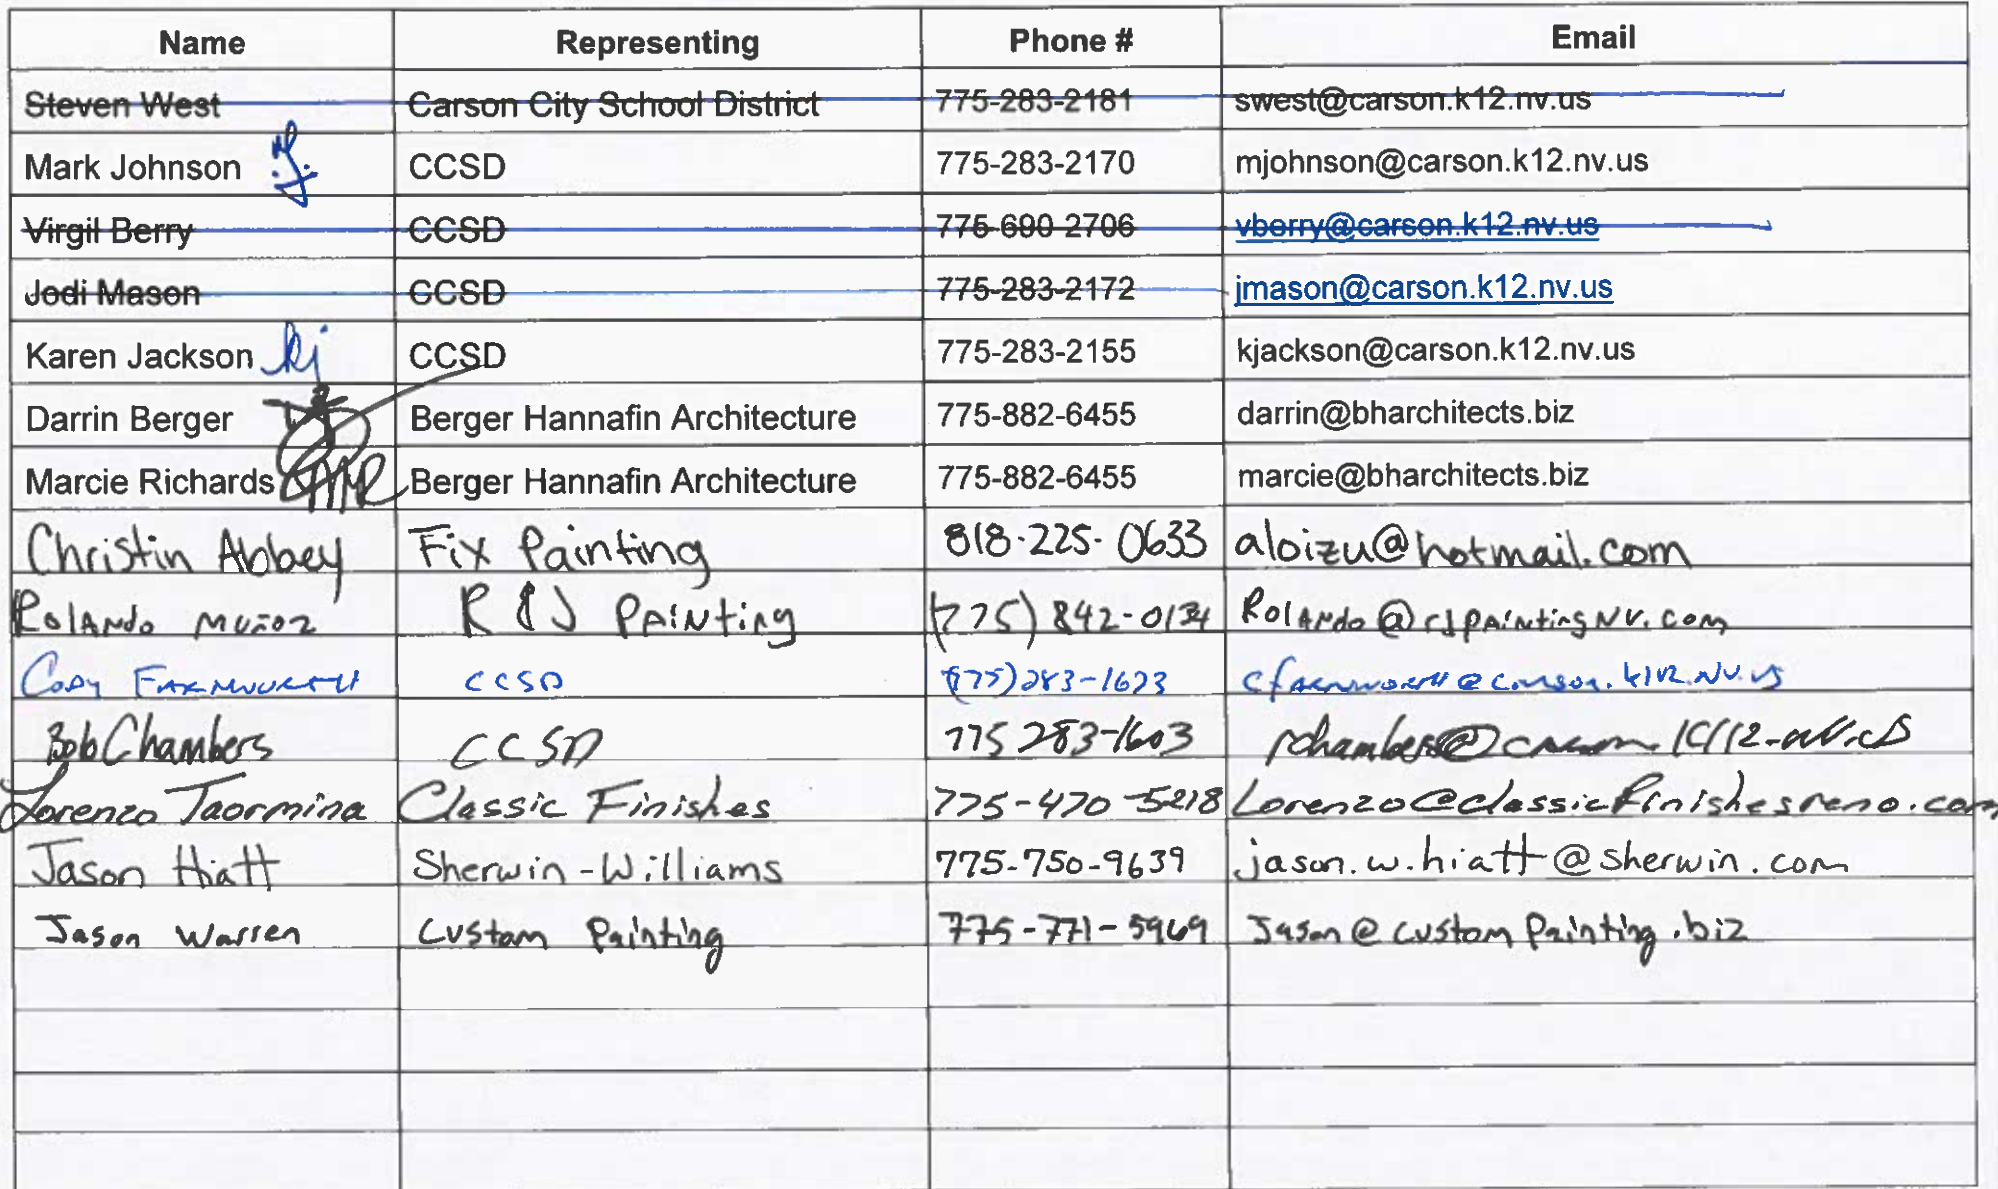 Name Representing Phone # Email
Steven West Carson City School District 775-283-2181 swest@carson.k12.nv.us
Mark Johnson mj CCSD 775-283-2170 mjohnson@carson.k12.nv.us
Virgil Berry CCSD 775-690-2706 vberry@carson.k12.nv.us
Jodi Mason CCSD 775-283-2172 jmason@carson.k12.nv.us
Karen Jackson kj CCSD 775-283-2155 kjackson@carson.k12.nv.us
Darrin Berger Berger Hannafin Architecture 775-882-6455 darrin@bharchitects.biz
Marcie Richards MR Berger Hannafin Architecture 775-882-6455 marcie@bharchitects.biz
Christin Abbey Fix Painting 818-225-0633 aloizu@hotmail.com
Rolando Muñoz R & J Painting (775) 842-0134 Rolando@rjpaintingNV.com
Cody Farnworth CCSD (775) 283-1623 cfarnworth@carson.k12.nv.us
Bob Chambers CCSD 775 283-1603
Lorenzo Taormina Classic Finishes 775-470-5218 Lorenzo@classicfinishesreno.com
Jason Hiatt Sherwin-Williams 775-750-9639 jason.w.hiatt@sherwin.com
Jason Warren Custom Painting 775-771-5969 Jason@customPainting.biz